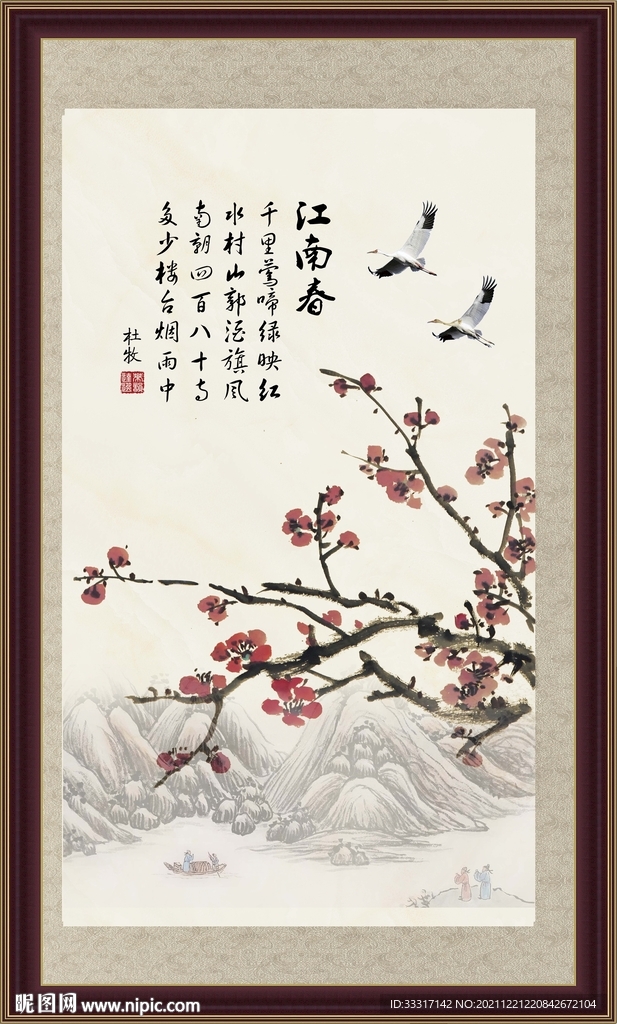 江南春
千里莺啼绿映红
水村山郭酒旗风
南朝四百八十寺
多少楼台烟雨中
杜牧
昵图网 www.nipic.com
ID:33317142 NO:20211221220842672104